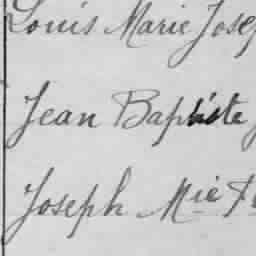 Louis Marie Josep
Jean Baptiste
Joseph Mie